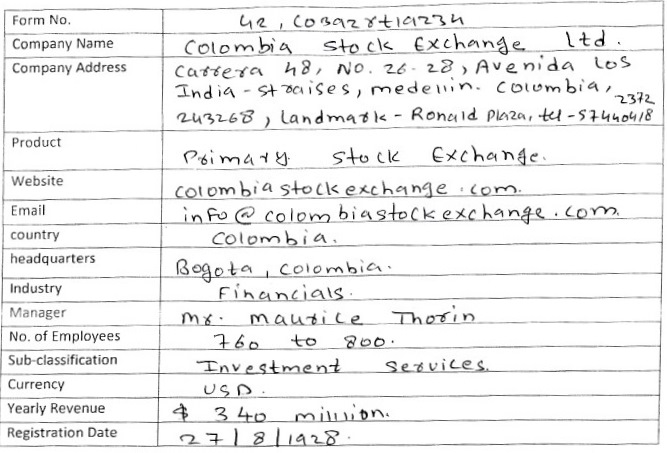 Form No. 42, Co3a2rt1a234
Company Name Colombia Stock Exchange Ltd.
Company Address Carrera 48, No. 26-28, Avenida Los
India - straises, medellin. Colombia,
2372
243268, Landmark - Ronald Plaza, tel - 57440418
Product Primary Stock Exchange.
Website colombiastockexchange.com.
Email info@colombiastockexchange.com.
country Colombia.
headquarters Bogota, Colombia.
Industry Financials.
Manager Mr. Maurice Thorin
No. of Employees 760 to 800.
Sub-classification Investment Services.
Currency USD.
Yearly Revenue $ 340 million.
Registration Date 27/8/1928.